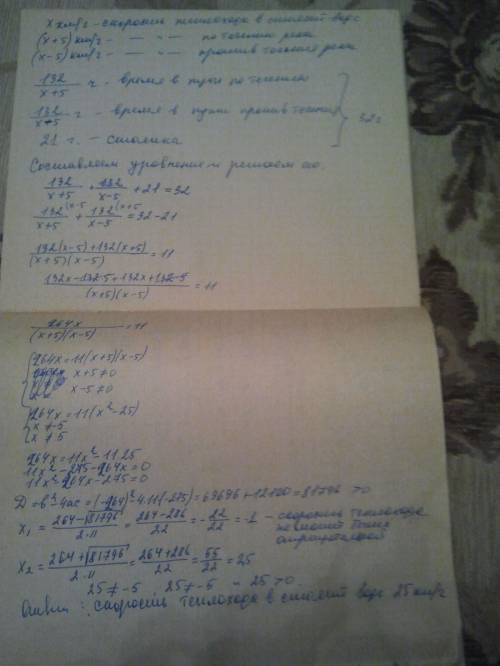 x км/г - скорость теплохода в стоячей воде
(x+5) км/г — „ — по течению реки
(x-5) км/г — „ — против течения реки
132/(x+5) г. - время в пути по течению
132/(x-5) г - время в пути против течения } 32г
21 г. - стоянка
Составляем уровнение и решаем его.
132/(x+5) + 132/(x-5) + 21 = 32
132/(x+5) (x-5 + 132/(x-5) (x+5 = 32-21
(132(x-5)+132(x+5))/((x+5)(x-5)) = 11
(132x-132·5+132x+132·5)/((x+5)(x-5)) = 11
264x/((x+5)(x-5)) = 11
{264x=11(x+5)(x-5)
x+5≠0
x-5≠0
{264x=11(x²-25)
x≠-5
x≠5
264x=11x²-11·25
11x²-275-264x=0
11x²-264x-275=0
D=в²-4ac=(-264)²-4·11·(-275)=69696+12100=81796 >0
x₁ = (264-√81796)/(2·11) = (264-286)/22 = -22/22 = -1 - скорость теплохода
не может быть
отрицательной
x₂ = (264+√81796)/(2·11) = (264+286)/22 = 55/22 = 25
25≠-5, 25≠-5 25>0
Ответ: скорость теплохода в стоячей воде 25 км/г